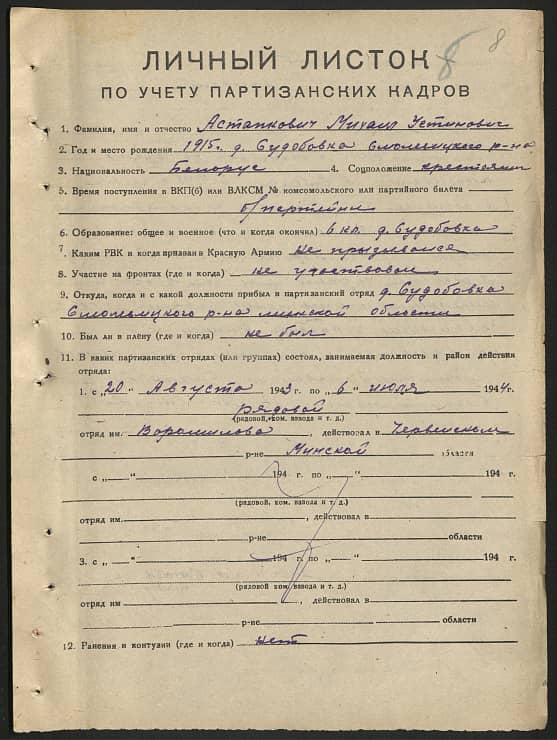 8 8
ЛИЧНЫЙ ЛИСТОК
ПО УЧЕТУ ПАРТИЗАНСКИХ КАДРОВ
1. Фамилия, имя и отчество Астапкович Михаил Устинович
2. Год и место рождения 1915г. д. Судобовка Смолевицкого р-на
3. Национальность Белорус 4. Соцположение крестьянин
5. Время поступления в ВКП(б) или ВЛКСМ № комсомольского или партийного билета
б/партейный
6. Образование: общее и военное (что и когда окончил) 6 кл. д. Судобовка
7. Каким РВК и когда призван в Красную Армию не прызывался
8. Участие на фронтах (где и когда) не участвовал
9. Откуда, когда и с какой должности прибыл в партизанский отряд д. Судобовка
Смолевицкого р-на минской области
10. Был ли в плену (где и когда) не был
11. В каких партизанских отрядах (или группах) состоял, занимаемая должность и район действия
отряда:
1. с „20“ Августа 1943 г. по „6“ июля 1944 г.
Рядовой
(рядовой, ком. взвода и т. д.)
отряд им. Ворошилова, действовал в Червенском
р-не Минской области
с „ “ 194 г. по „ “ 194 г.
(рядовой, ком. взвода и т. д.)
отряд им. , действовал в
р-не области
3. с „ “ 194 г. по „ “ 194 г.
(рядовой ком. взвода и т. д.)
отряд им , действовал в
р-не области
12. Ранения и контузии (где и когда) нет